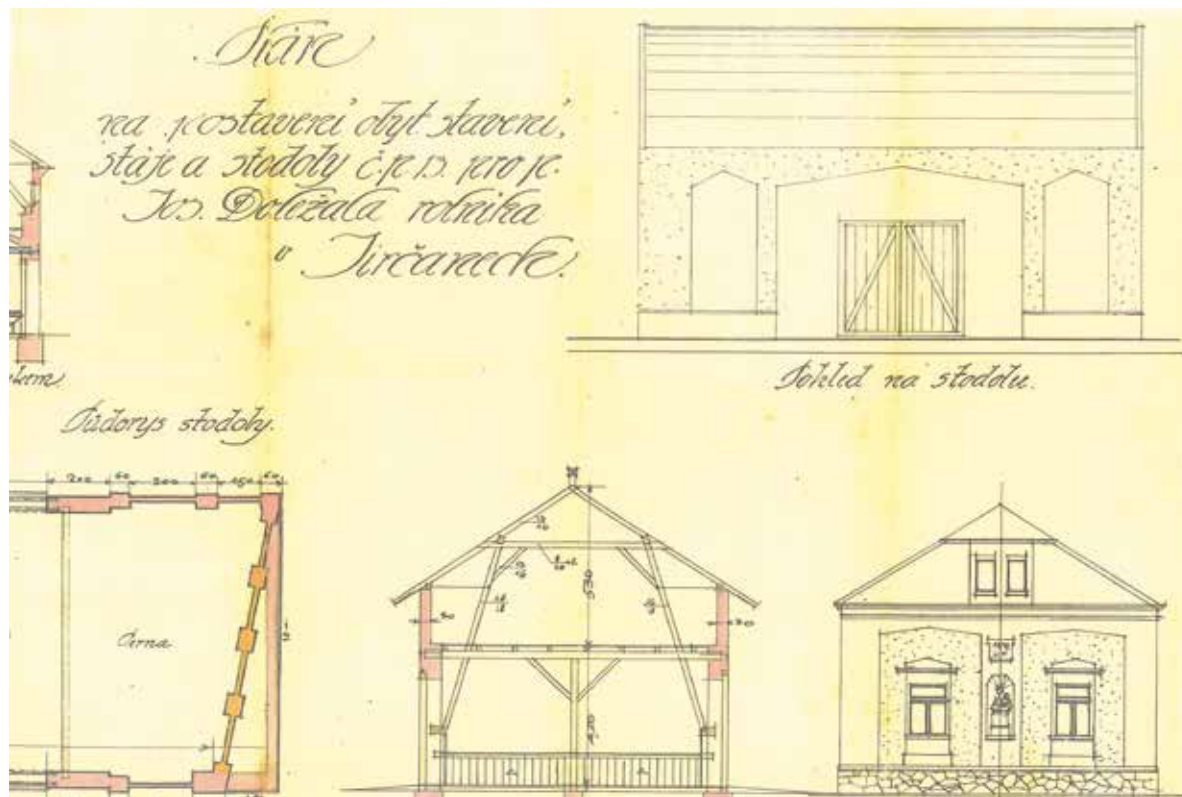 Pláre
na postavení obyt stavení,
stáje a stodoly č.p. 13. pro p.
Jos. Doležala rolníka
v Jirčanech.
Pohled na stodolu.
Půdorys stodoly.
200 60 200 60 150 60
Perna
530
420